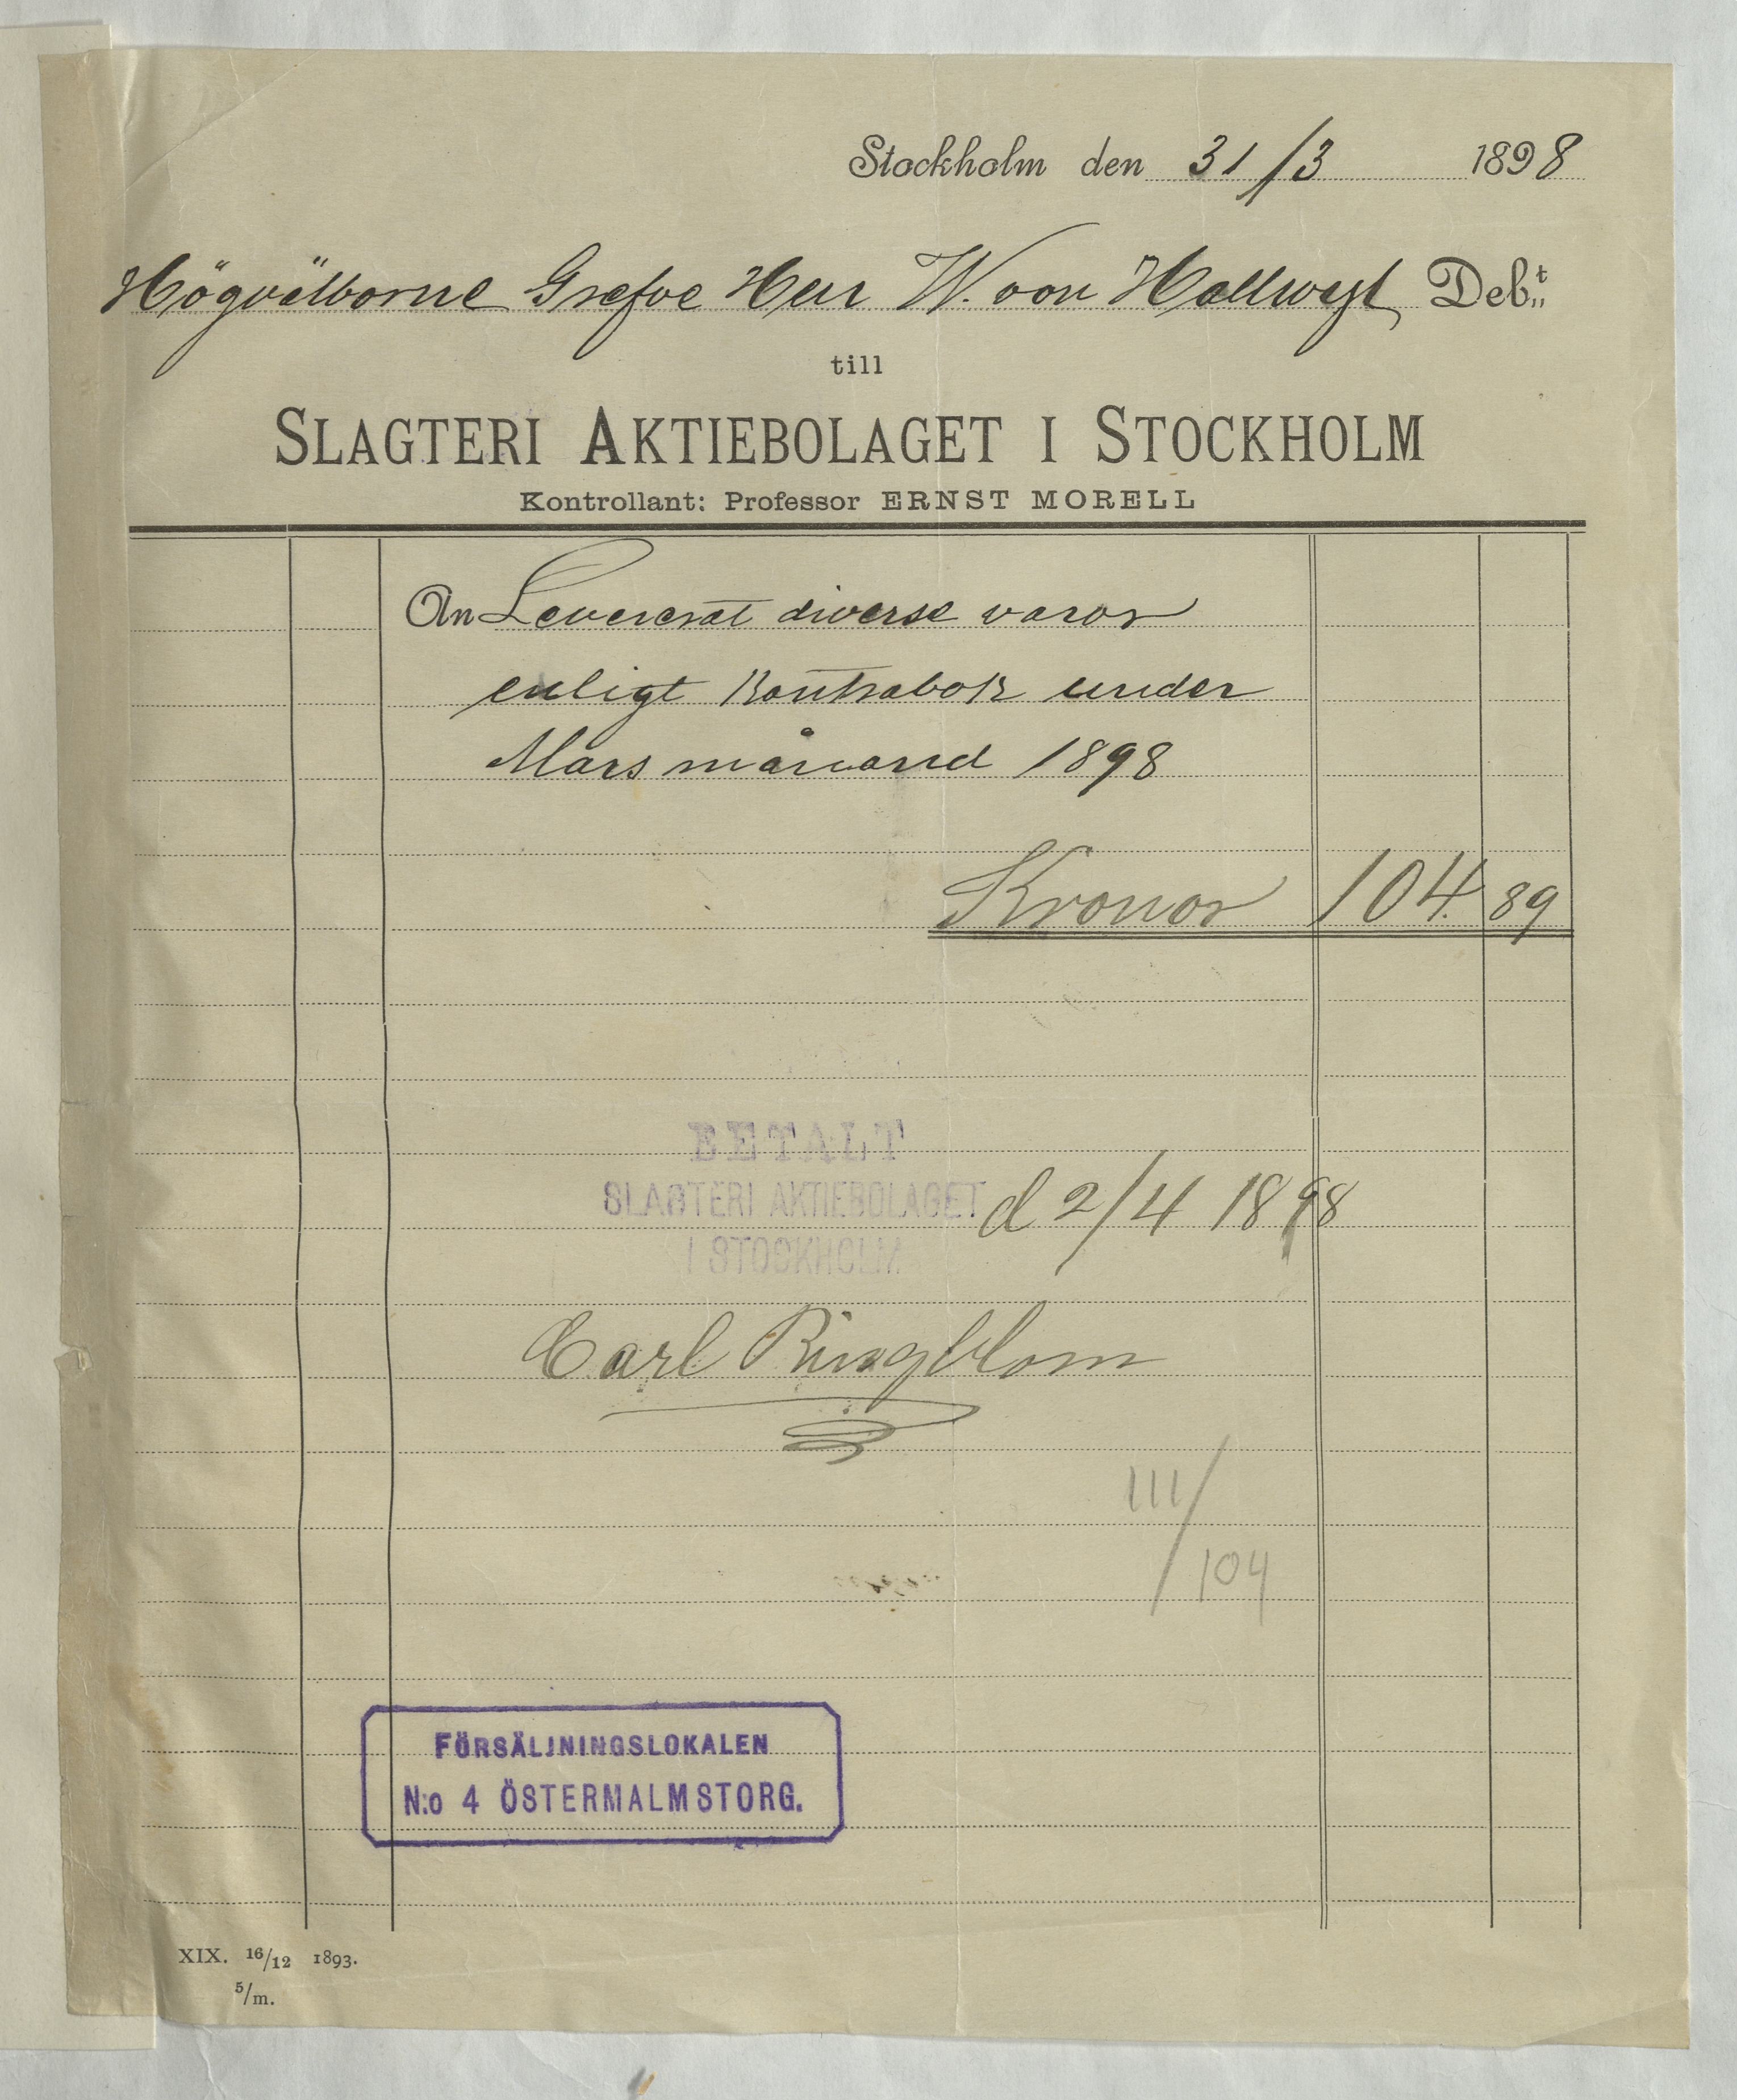 Stockholm den 31/3 1898
Högvälborne Grefve Herr W. von Hallwyl Deb:t
till
SLAGTERI AKTIEBOLAGET I STOCKHOLM
Kontrollant: Professor ERNST MORELL
An Levererat diverse varor
enligt Kontrabok under
Mars månad 1898
Kronor 104.89
BETALT
SLAGTERI AKTIEBOLAGET d 2/4 1898
I STOCKHOLM
Carl Ringblom
111/104
FÖRSÄLJNINGSLOKALEN
N:o 4 ÖSTERMALMSTORG.
XIX. 16/12 1893.
5/m.